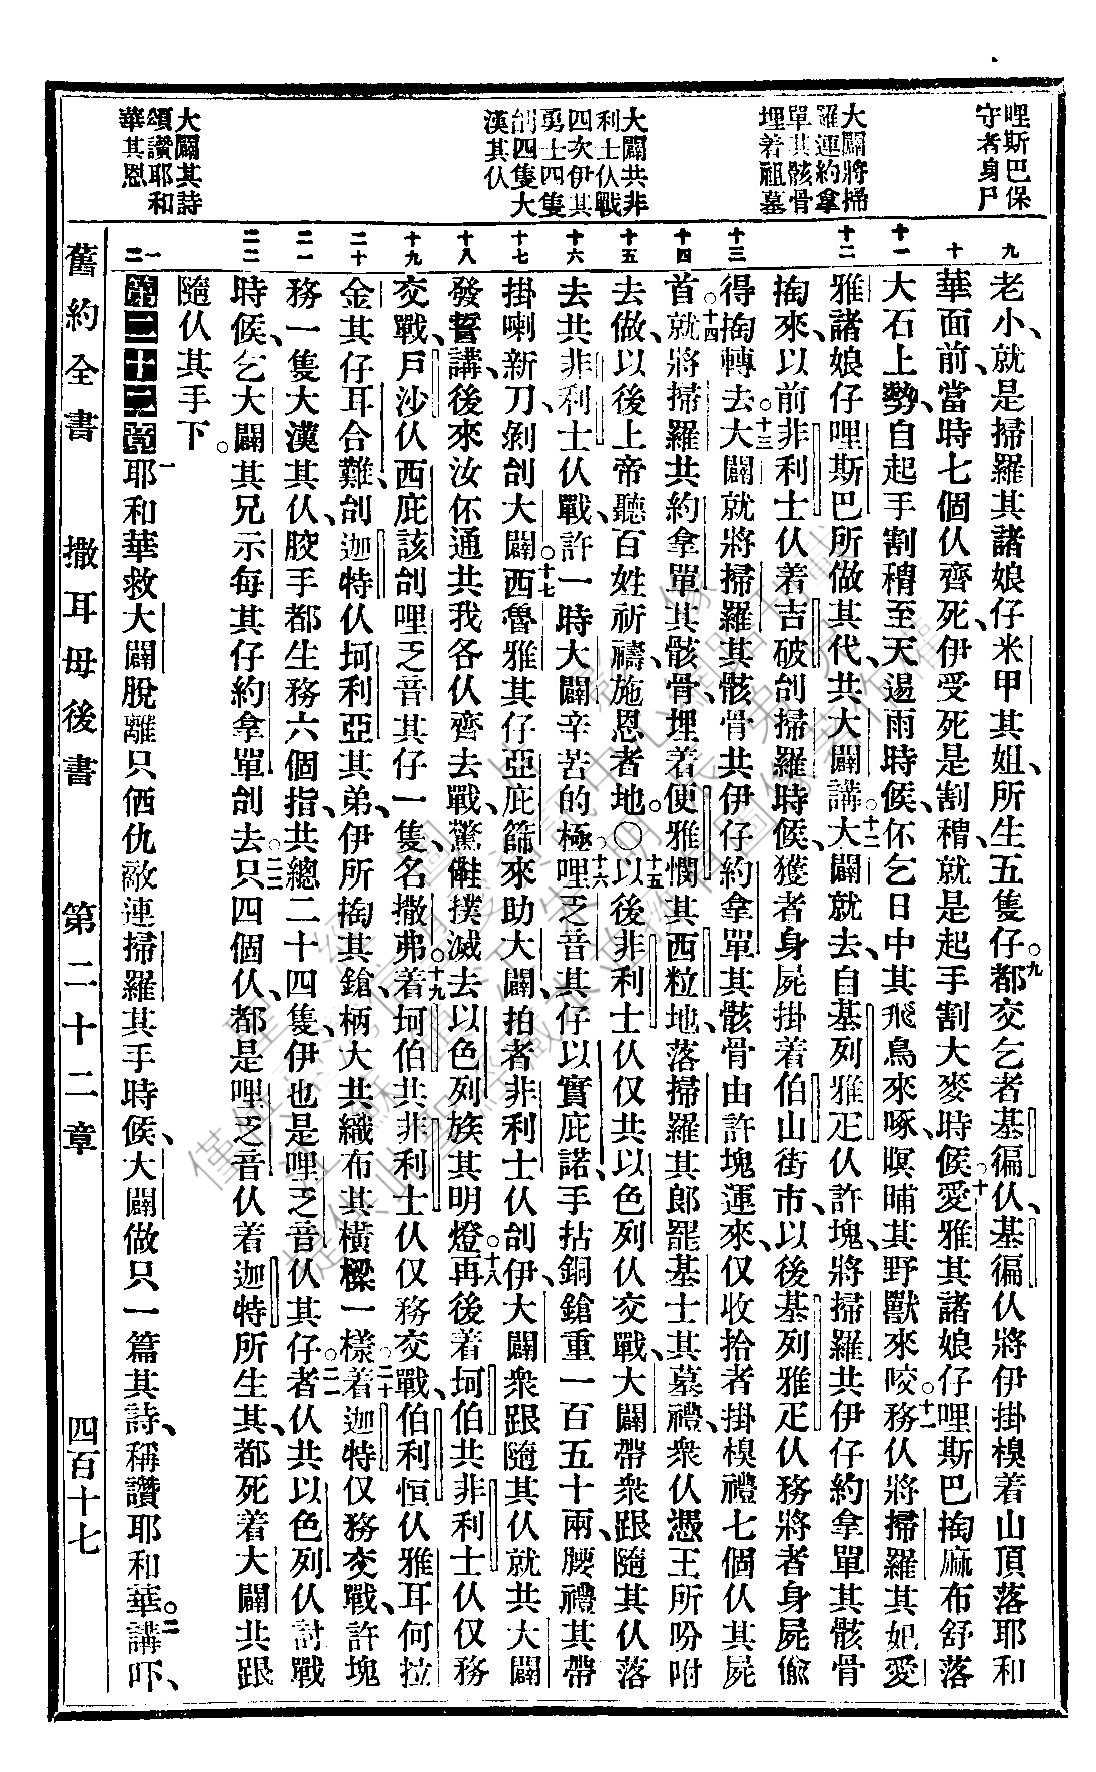 哩斯巴保
守者身尸
大闢將掃
羅連約拿
單其骸骨
埋着祖墓
大闢共非
利士仈戰
四次伊其
勇士四隻
刣四隻大
漢其仈
大闢其詩
頌讚耶和
華其恩
九
十
十一
十二
十三
十四
十五
十六
十七
十八
十九
二十
二一
二二
一
二
老小、就是掃羅其諸娘仔米甲其姐、所生五隻仔。九都交乞者基徧仈、基徧仈將伊掛模着山頂落耶和
華面前、當時七個仈齊死、伊受死是割稰、就是起手割大麥時候。十愛雅其諸娘仔哩斯巴掏麻布舒落
大石上勢、自起手割稰至天遏雨時候、伓乞日中其飛鳥來啄、暝晡其野獸來咬。十一務仈將掃羅其妃愛
雅諸娘仔哩斯巴所做其代、共大闢講。十二大闢就去、自基列雅疋仈許塊、將掃羅共伊仔約拿單其骸骨
掏來、以前非利士仈着吉破刣掃羅時候、獲者身屍掛着伯山街市、以後基列雅疋仈務將者身屍偸
得掏轉去。十三大闢就將掃羅其骸骨、共伊仔約拿單其骸骨由許塊運來、仅收拾者掛模禮七個仈其屍
首。十四就將掃羅共約拿單其骸骨、埋着便雅憫其西粒地、落掃羅其郎罷基士其墓禮、衆仈憑王所吩咐
去做、以後上帝聽百姓祈禱、施恩者地。〇十五以後非利士仈仅共以色列仈交戰、大闢帶衆跟隨其仈落
去共非利士仈戰、許一時大闢辛苦的極。十六哩乏音其仔以實庇諾、手拈銅鎗重一百五十兩、腰禮其帶
掛喇新刀、剝刣大闢。十七西魯雅其仔亞庇篩來助大闢、拍者非利士仈刣伊、大闢衆跟隨其仈就共大闢
發誓講、後來汝伓通共我各仈齊去戰、驚𣍐撲滅去以色列族其明燈。十八再後着坷伯共非利士仈仅務
交戰、戶沙仈西庇該刣哩乏音其仔一隻、名撒弗。十九着坷伯共非利士仈仅務交戰、伯利恒仈雅耳何拉
金其仔耳合難、刣迦特仈坷利亞其弟、伊所掏其鎗、柄大共織布其橫樑一樣。二十着迦特仅務交戰、許塊
務一隻大漢其仈、骹手都生務六個指、共總二十四隻、伊也是哩乏音仈其仔。二一者仈共以色列仈討戰
時候、乞大闢其兄示每其仔約拿單刣去。二二只四個仈、都是哩乏音仈着迦特所生其、都死着大闢共跟
隨仈其手下。
第二十二章一耶和華救大闢脫離只価仇敵連掃羅其手時候、大闢做只一篇其詩、稱讚耶和華。二講吓、
舊約全書　撒耳母後書　第二十二章　四百十七